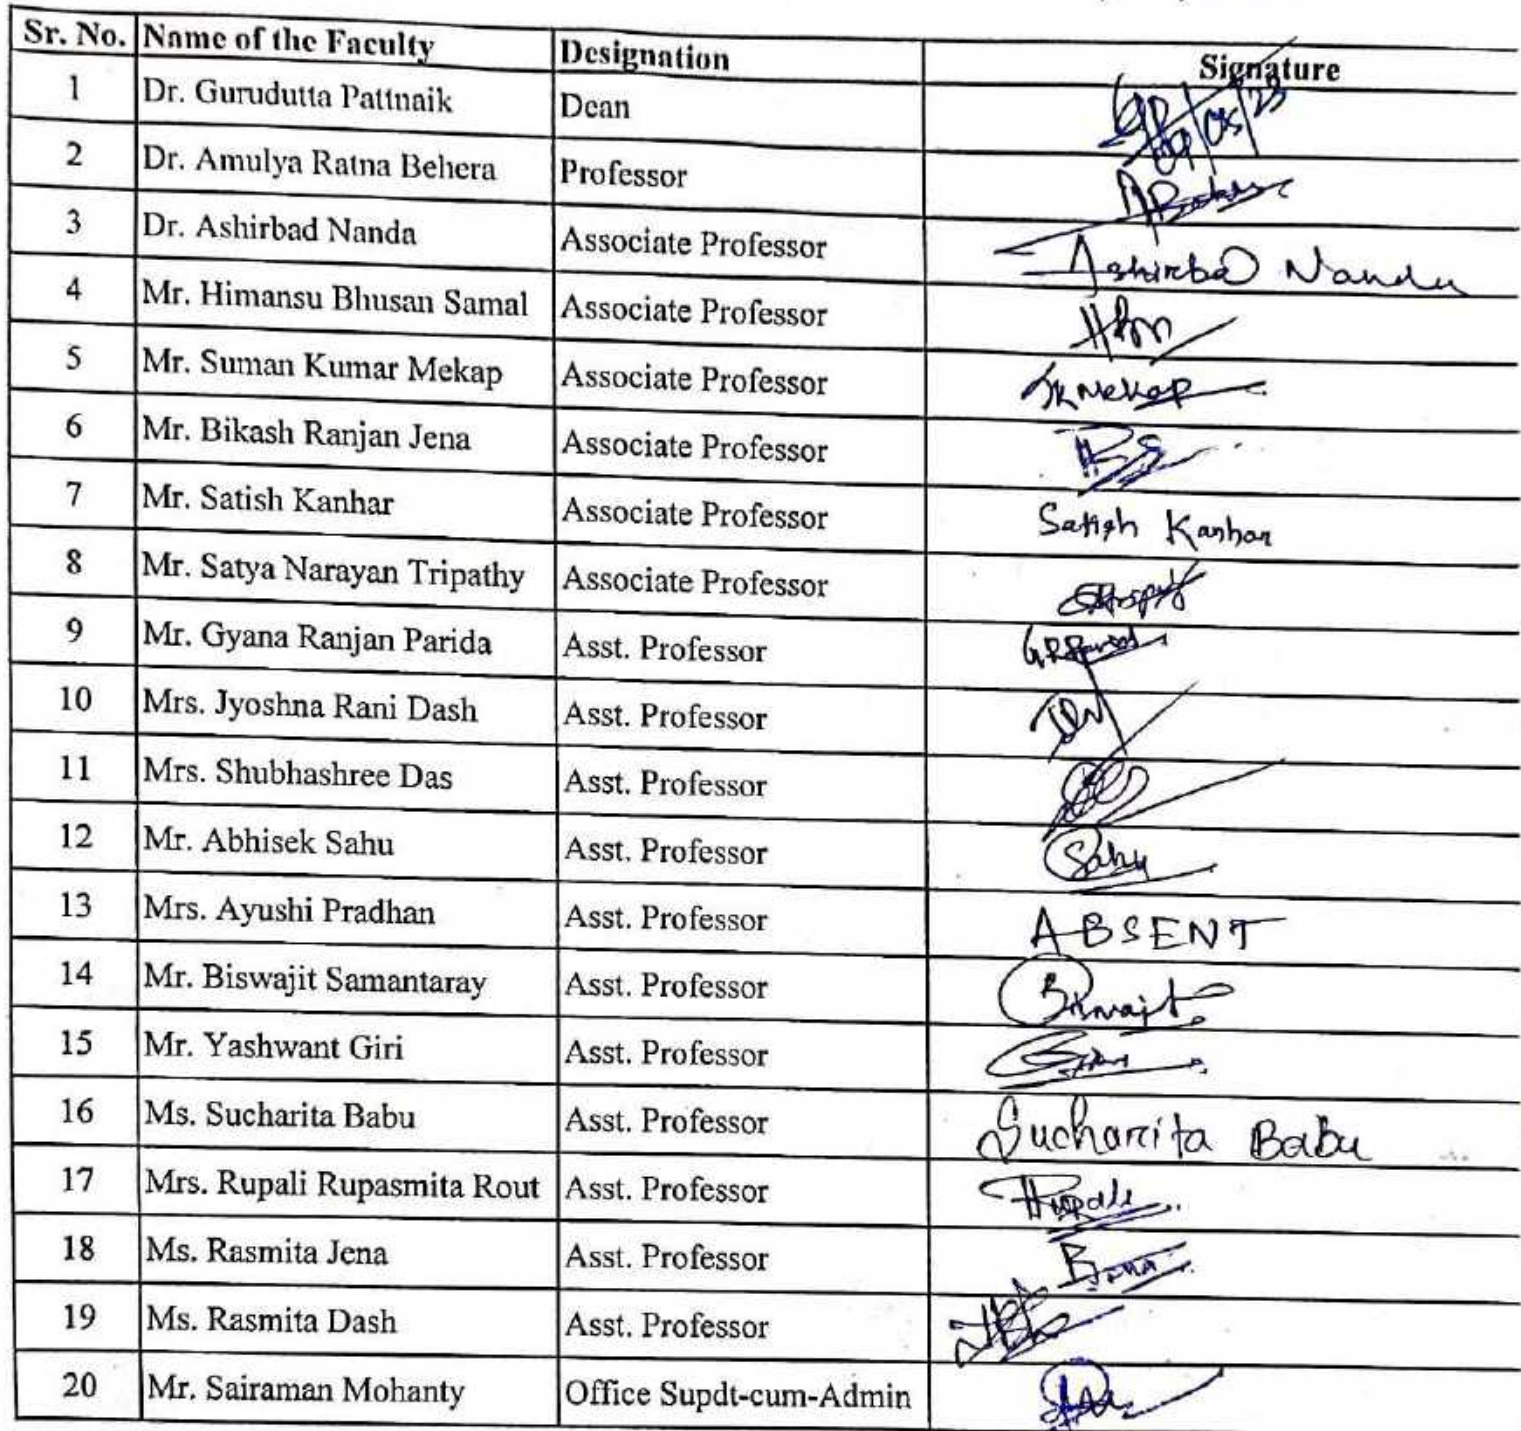 Sr. No. Name of the Faculty Designation Signature
1 Dr. Gurudutta Pattnaik Dean
2 Dr. Amulya Ratna Behera Professor
3 Dr. Ashirbad Nanda Associate Professor Ashirbad Nanda
4 Mr. Himansu Bhusan Samal Associate Professor
5 Mr. Suman Kumar Mekap Associate Professor SKMekap
6 Mr. Bikash Ranjan Jena Associate Professor
7 Mr. Satish Kanhar Associate Professor Satish Kanhar
8 Mr. Satya Narayan Tripathy Associate Professor
9 Mr. Gyana Ranjan Parida Asst. Professor
10 Mrs. Jyoshna Rani Dash Asst. Professor
11 Mrs. Shubhashree Das Asst. Professor
12 Mr. Abhisek Sahu Asst. Professor Sahu
13 Mrs. Ayushi Pradhan Asst. Professor ABSENT
14 Mr. Biswajit Samantaray Asst. Professor Biswajit
15 Mr. Yashwant Giri Asst. Professor
16 Ms. Sucharita Babu Asst. Professor Sucharita Babu
17 Mrs. Rupali Rupasmita Rout Asst. Professor Rupali
18 Ms. Rasmita Jena Asst. Professor
19 Ms. Rasmita Dash Asst. Professor
20 Mr. Sairaman Mohanty Office Supdt-cum-Admin